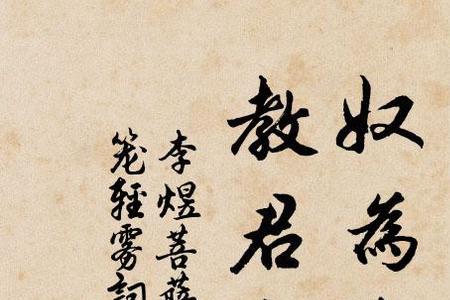 奴為
教君
李煜菩薩
笼輕雾詞